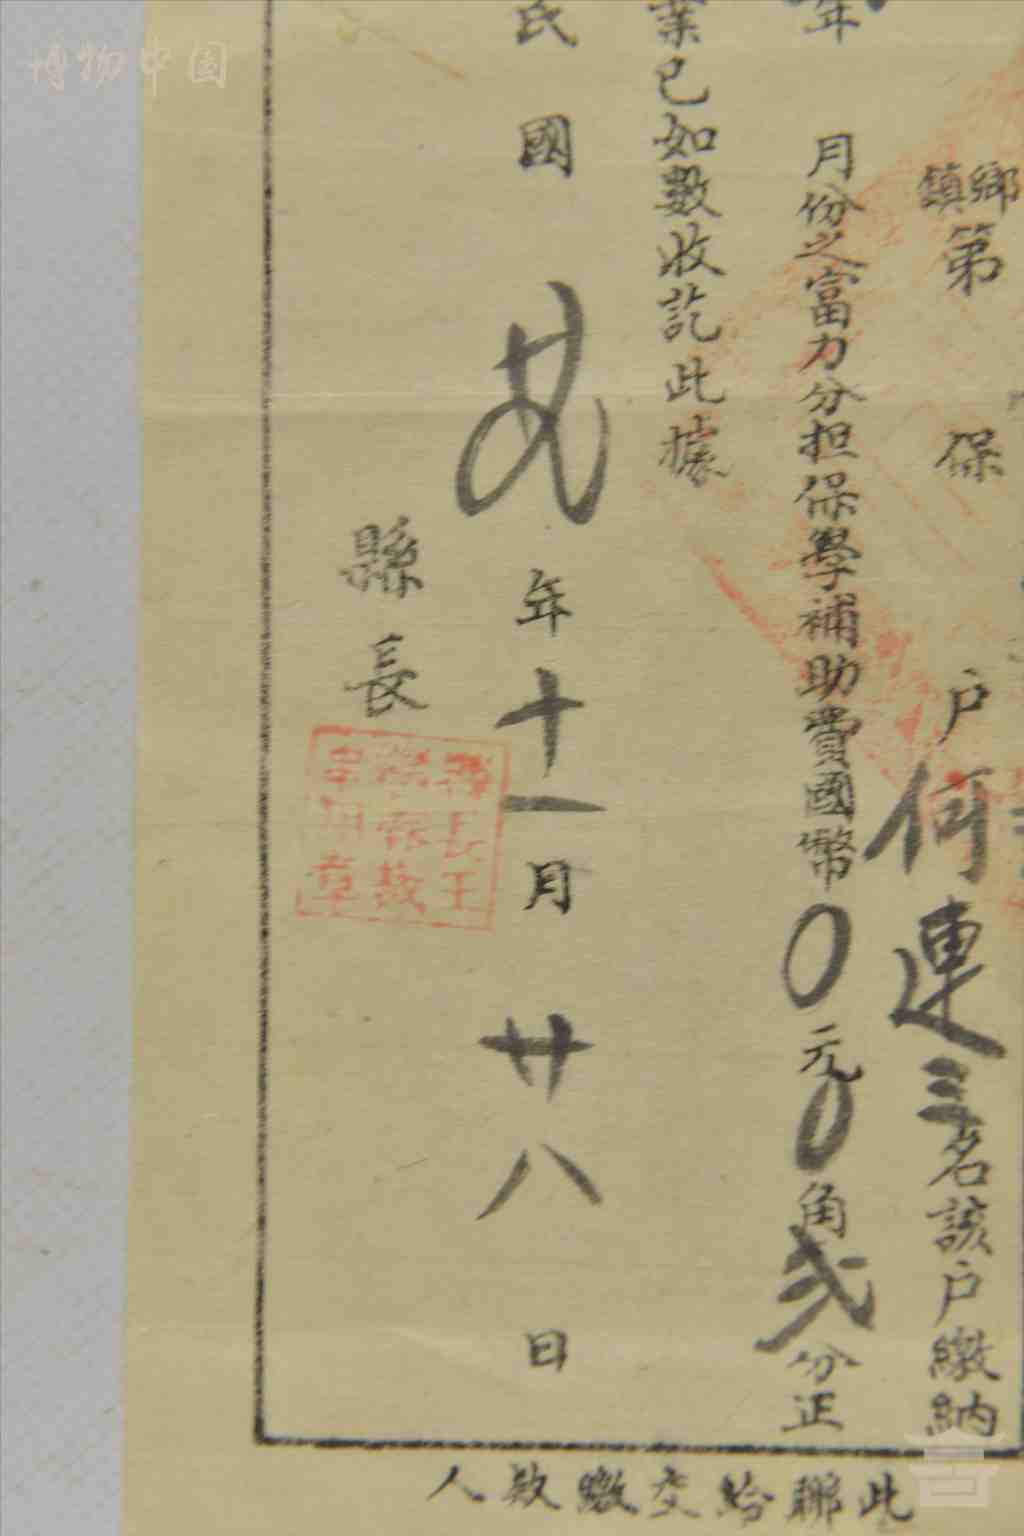 博物中国
鄉鎮第 保 户何連三名該户繳納
年 月份之富力分担保學補助費國幣0元0角弍分正
業已如數收訖此據
民國 年十一月廿八日
縣長
縣長王
章
此聯給交繳款人